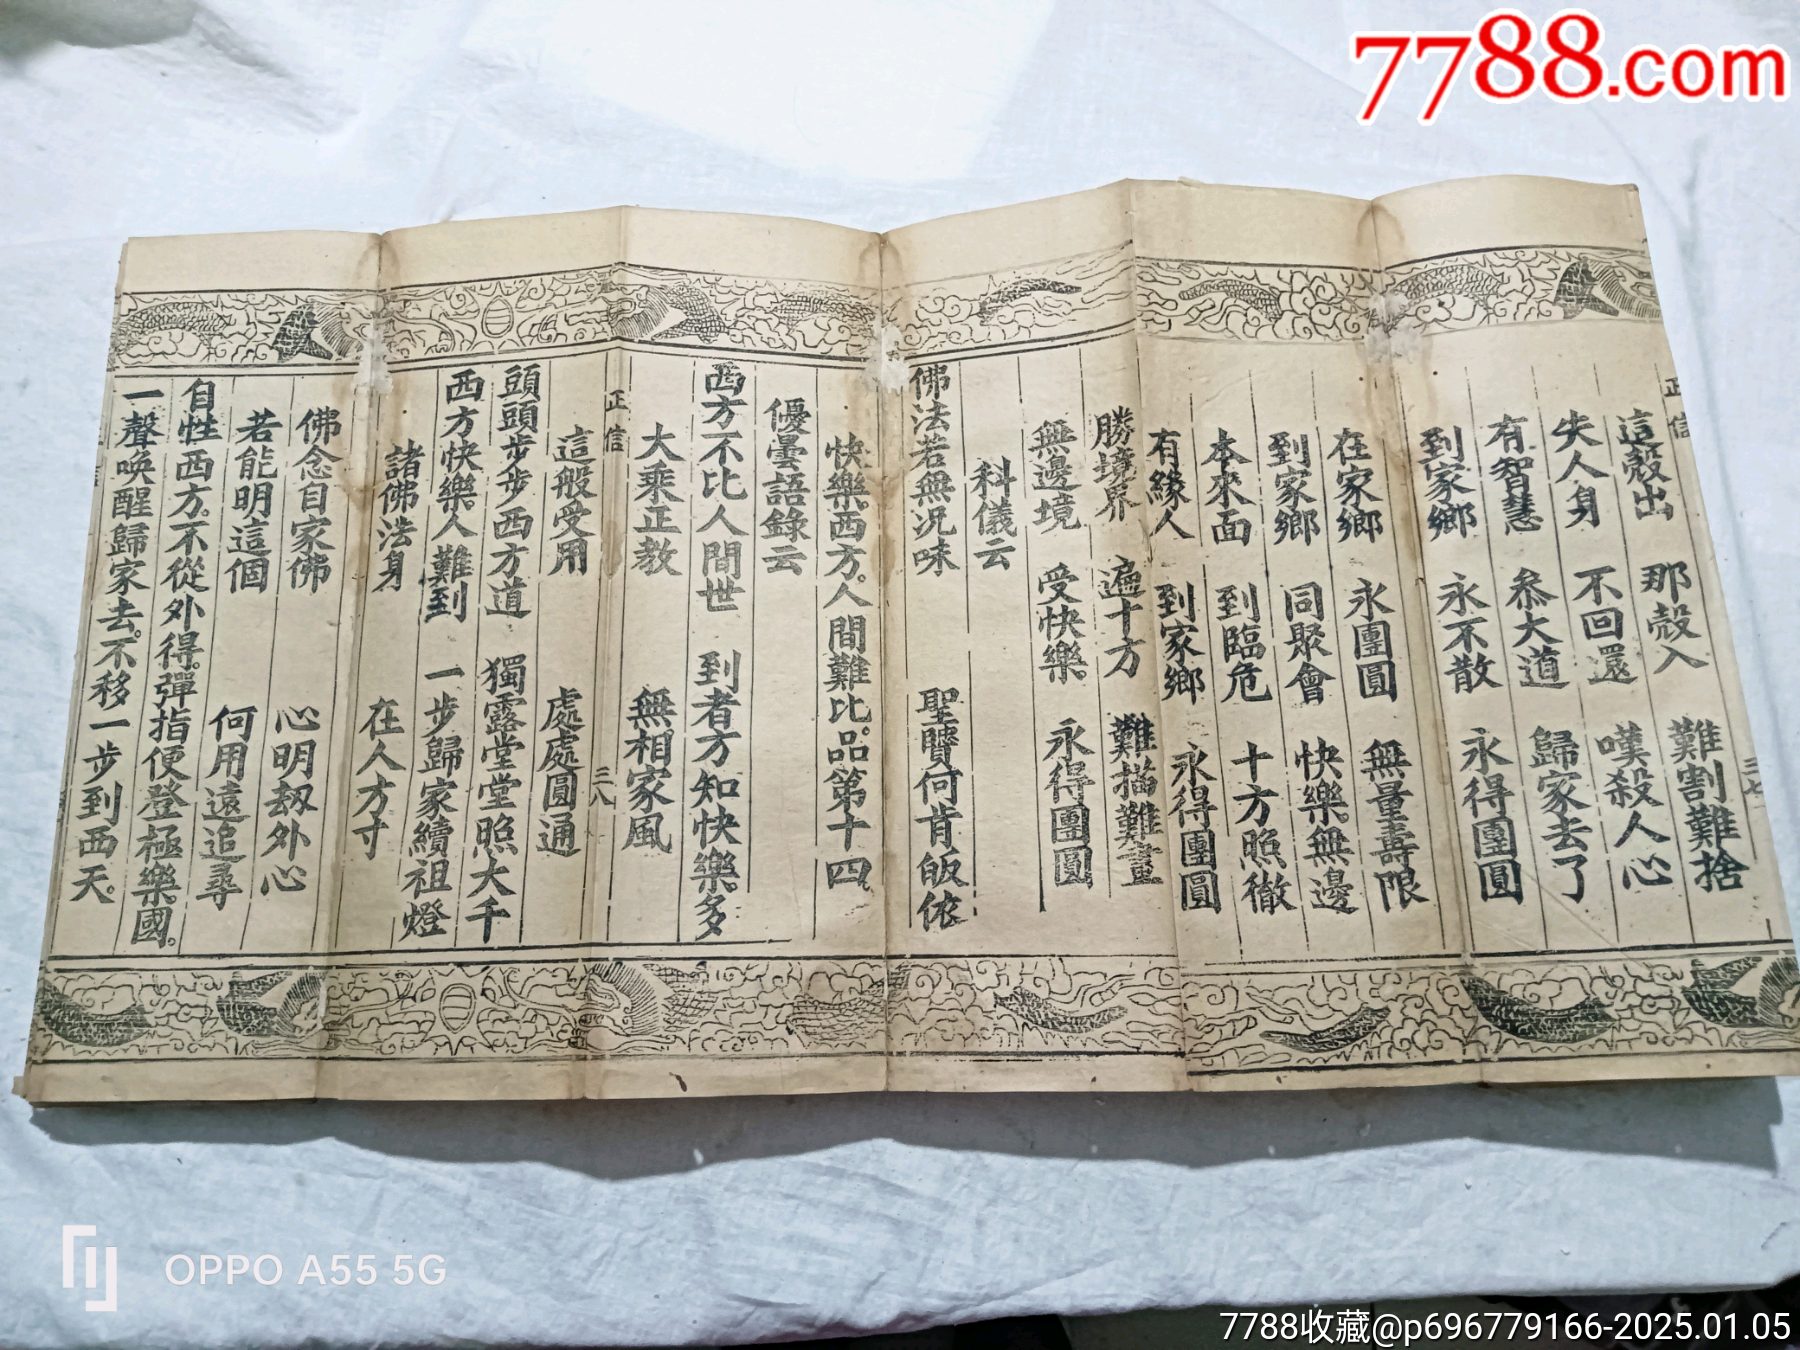 7788.com
正信
三七
這殼出 那殼入 難割難捨
失人身 不回還 嘆殺人心
有智慧 叅大道 歸家去了
到家鄉 永不散 永得團圓
在家鄉 永團圓 無量壽限
到家鄉 同聚會 快樂無邊
本來面 到臨危 十方照徹
有緣人 到家鄉 永得團圓
勝境界 遍十方 難描難畫
無邊境 受快樂 永得團圓
科儀云
佛法若無況味 聖賢何肯皈依
快樂西方人間難比品第十四
優曇語錄云
西方不比人間世 到者方知快樂多
大乘正教 無相家風
正信
三八
這般受用 處處圓通
頭頭步步西方道 獨露堂堂照大千
西方快樂人難到 一步歸家續祖燈
諸佛法身 在人方寸
佛念自家佛 心明劫外心
若能明這個 何用遠追尋
自性西方。不從外得。彈指便登極樂國。
一聲喚醒歸家去。不移一步到西天。
OPPO A55 5G
7788收藏@p696779166-2025.01.05